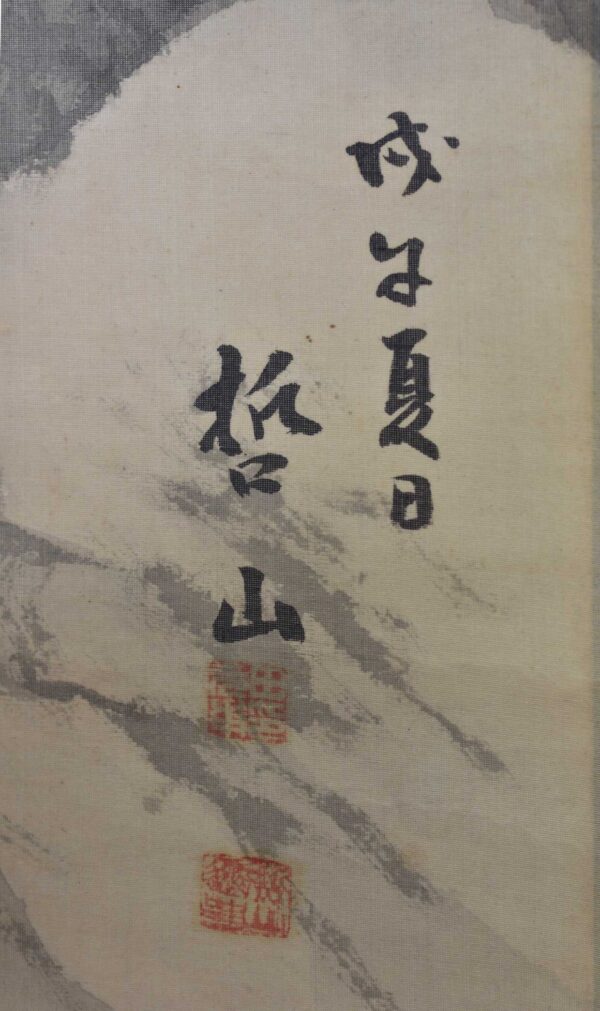 戊午夏日
哲山